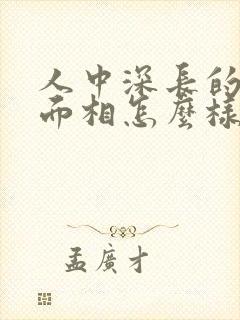 人中深長的
面相怎麼樣
孟廣才